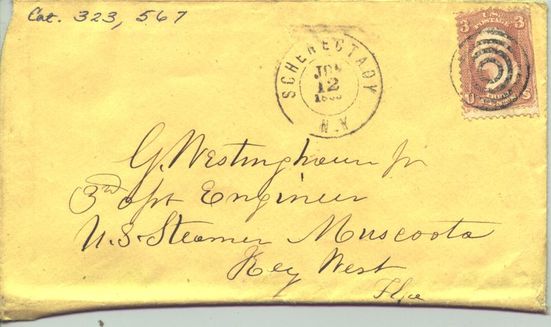 Cat. 323, 567
SCHENECTADY
N.Y
12
3 U.S. POSTAGE 3
U THREE CENTS S
G. Westinghouse Jr
3rd ast Engineer
U.S. Steamer Muscoota
Key West
Fla